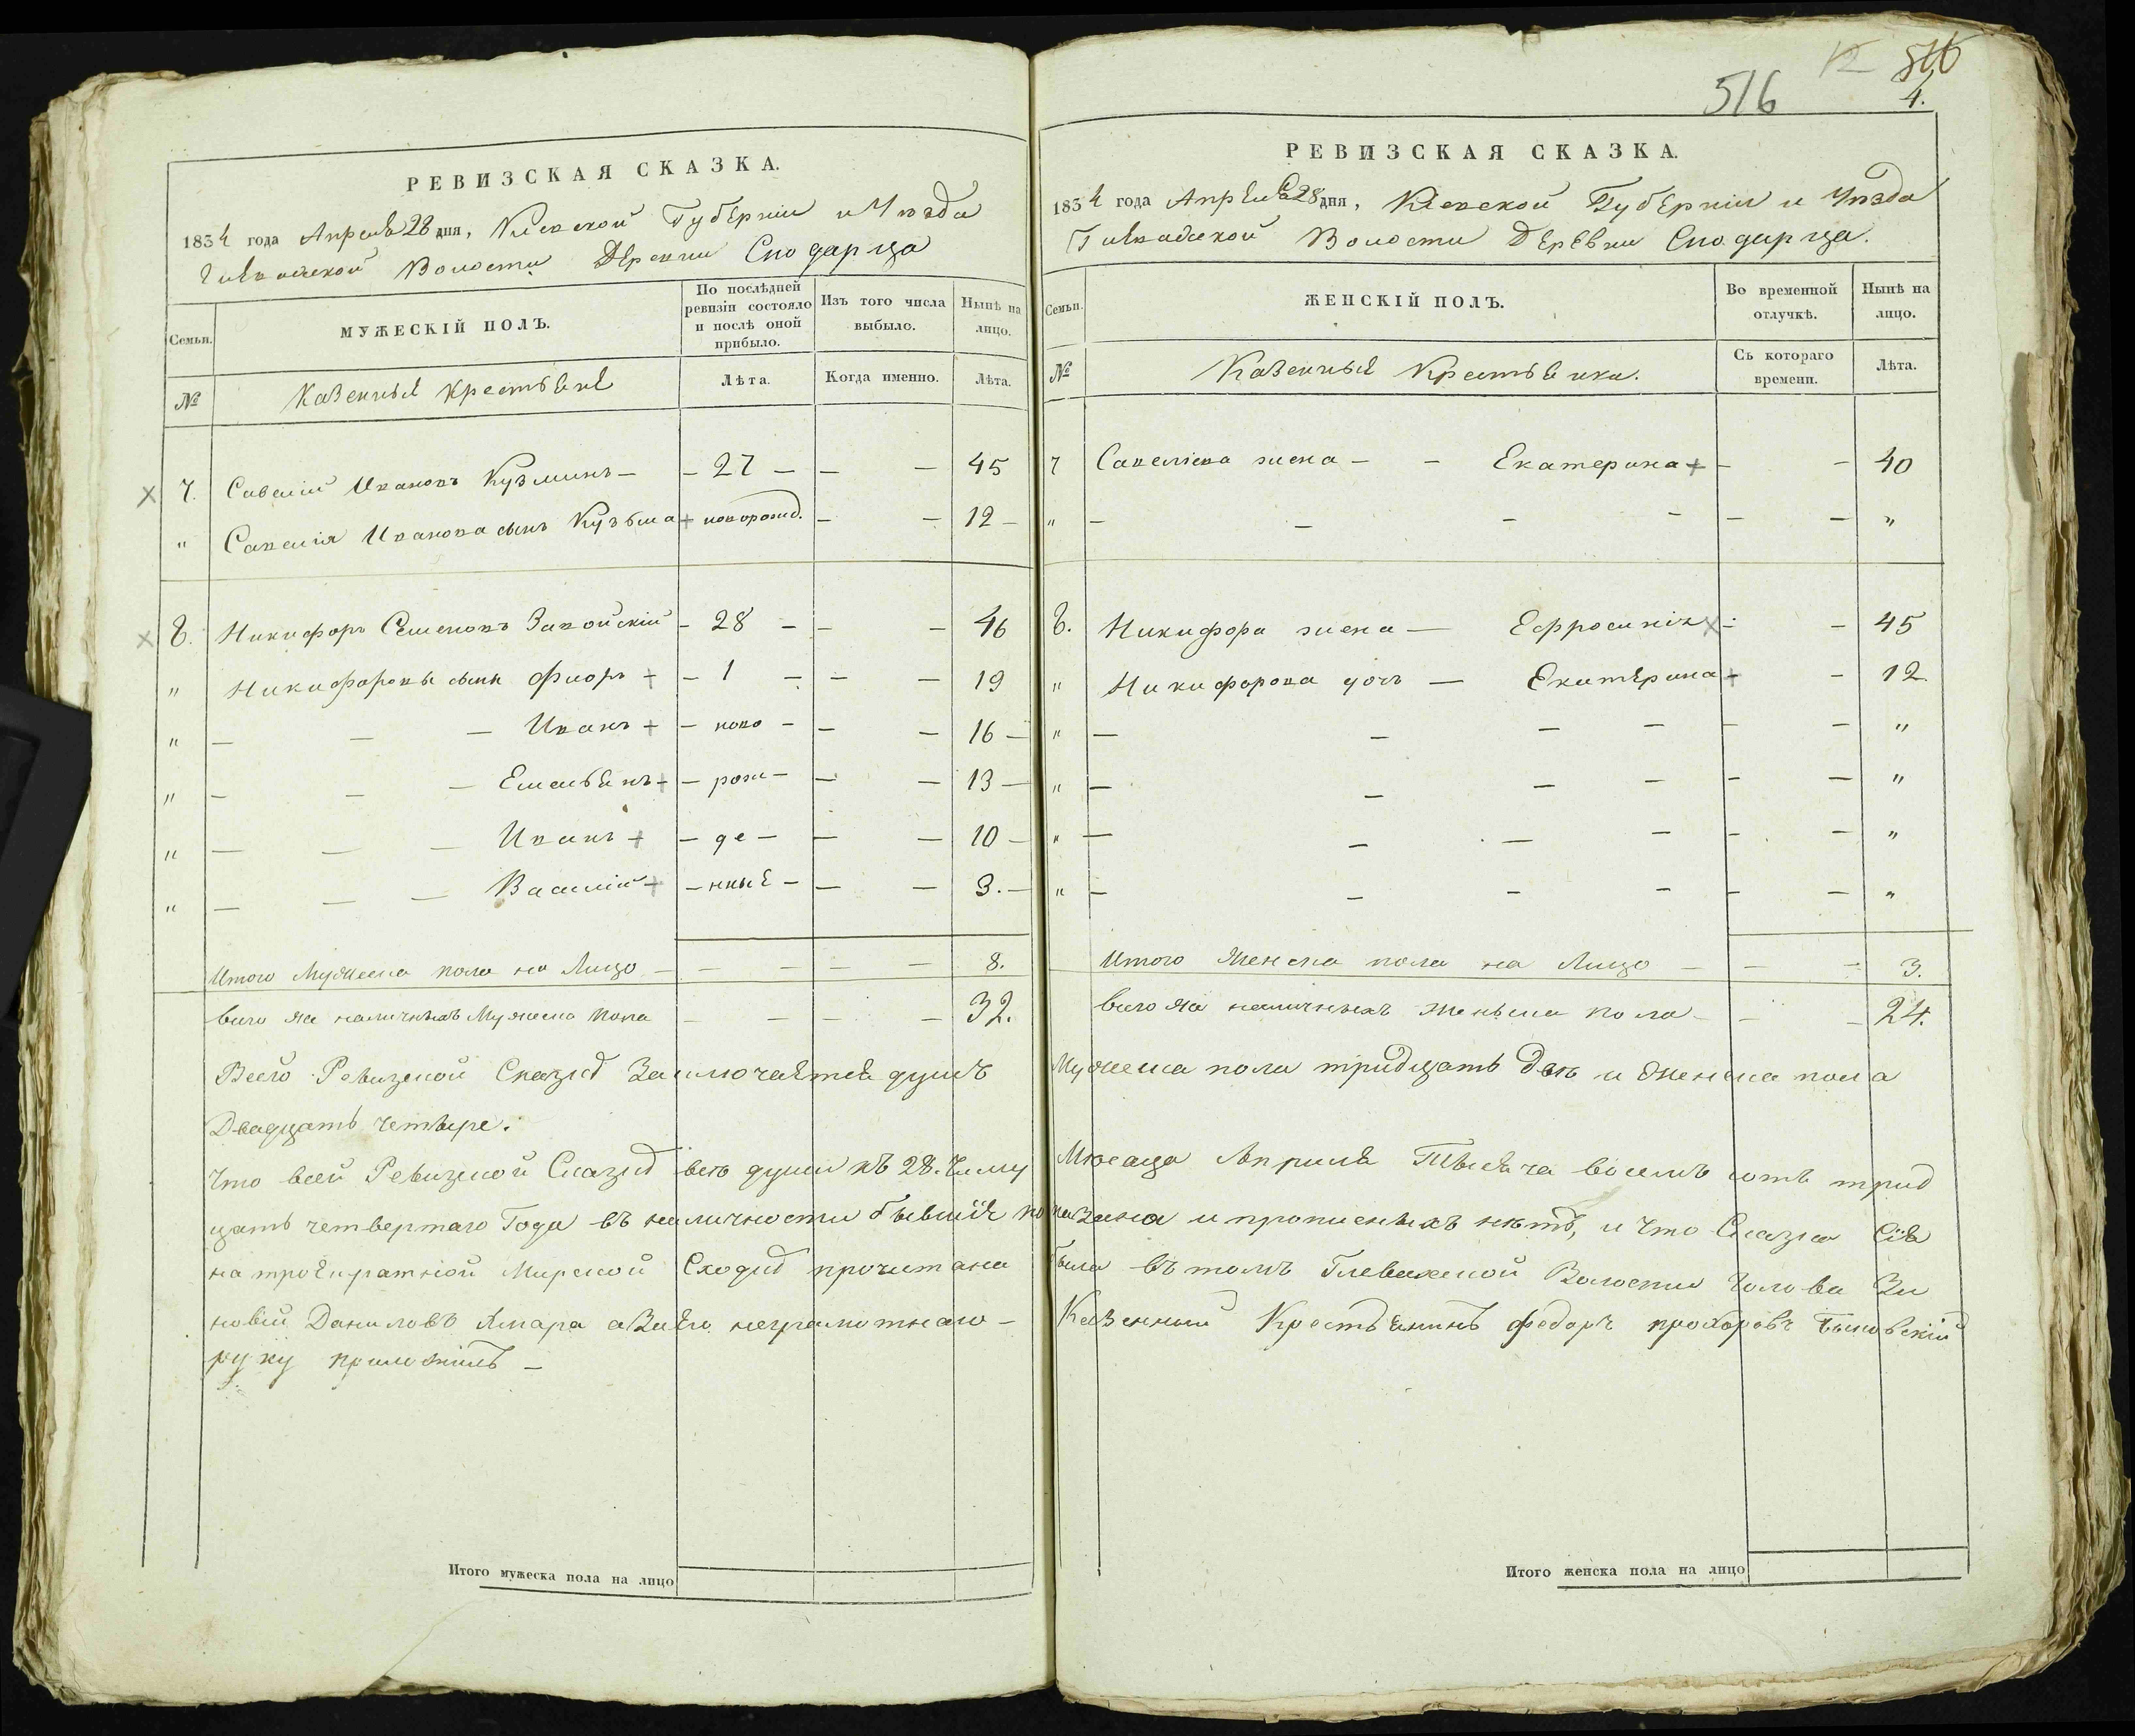 РЕВИЗСКАЯ СКАЗКА.
1834 года Апреля 28 дня, Кіевской Губерніи и Уезда
Волости Деревни Сподарца
Семьи.
МУЖЕСКІЙ ПОЛЪ.
По послѣдней ревизіи состояло и послѣ оной прибыло.
Изъ того числа выбыло.
Нынѣ на лицо.
№
Казенные крестьяне
Лѣта.
Когда именно.
Лѣта.
7. Савелій Ивановъ Кузминъ — — 27 — — — 45
" Савелія Иванова сынъ Кузьма + новорожд. — — 12 —
8. Никифоръ Семеновъ — 28 — — — 46
" Никифоровы сыны Флоръ + — 1 — — — 19
" — — — Иванъ + — ново — — — 16 —
" — — — Емельянъ + — рож — — — 13 —
" — — — Иванъ + — де — — — 10 —
" — — — Василій + — нные — — — 3. —
Итого Мужеска пола на Лицо — — — — — 8.
Мужеска пола — — — — 32.
Всего Ревизской Сказке Заключается душъ
Двадцать четыре.
Что всей Ревизской Сказке всѣ души къ 28. Числу
цать четвертаго Года въ наличности бывшія по
на Мирской Сходке прочитана
новій Даниловъ а За Его неграмотнаго —
руку приложилъ —
Итого мужеска пола на лицо
516
4.
РЕВИЗСКАЯ СКАЗКА.
1834 года Апреля 28 дня, Кіевской Губерніи и Уезда
Волости Деревни Сподарца.
Семьи.
ЖЕНСКІЙ ПОЛЪ.
Во временной отлучкѣ.
Нынѣ на лицо.
№
Казенные Крестьянки.
Съ котораго времени.
Лѣта.
7 Савеліева жена — — Екатерина + — — 40
" — — — — — — "
8. Никифора жена — Ефросинія × — — 45
" Никифорова дочь — Екатерина + — — 12.
" — — — — — — "
" — — — — — — "
" — — — — — — "
" — — — — — — "
Итого Женска пола на Лицо — — — 3.
наличныхъ женьска пола — — — 24.
Мужеска пола тридцать два и Женска пола
Мѣсяца Апреля Тысяча восемь сотъ трид
казана и прописныхъ нѣтъ, и что Сказка Сія
была въ томъ Глевахской Волости Голова Зи
Казенный Крестьянинъ Федоръ Прохоровъ
Итого женска пола на лицо